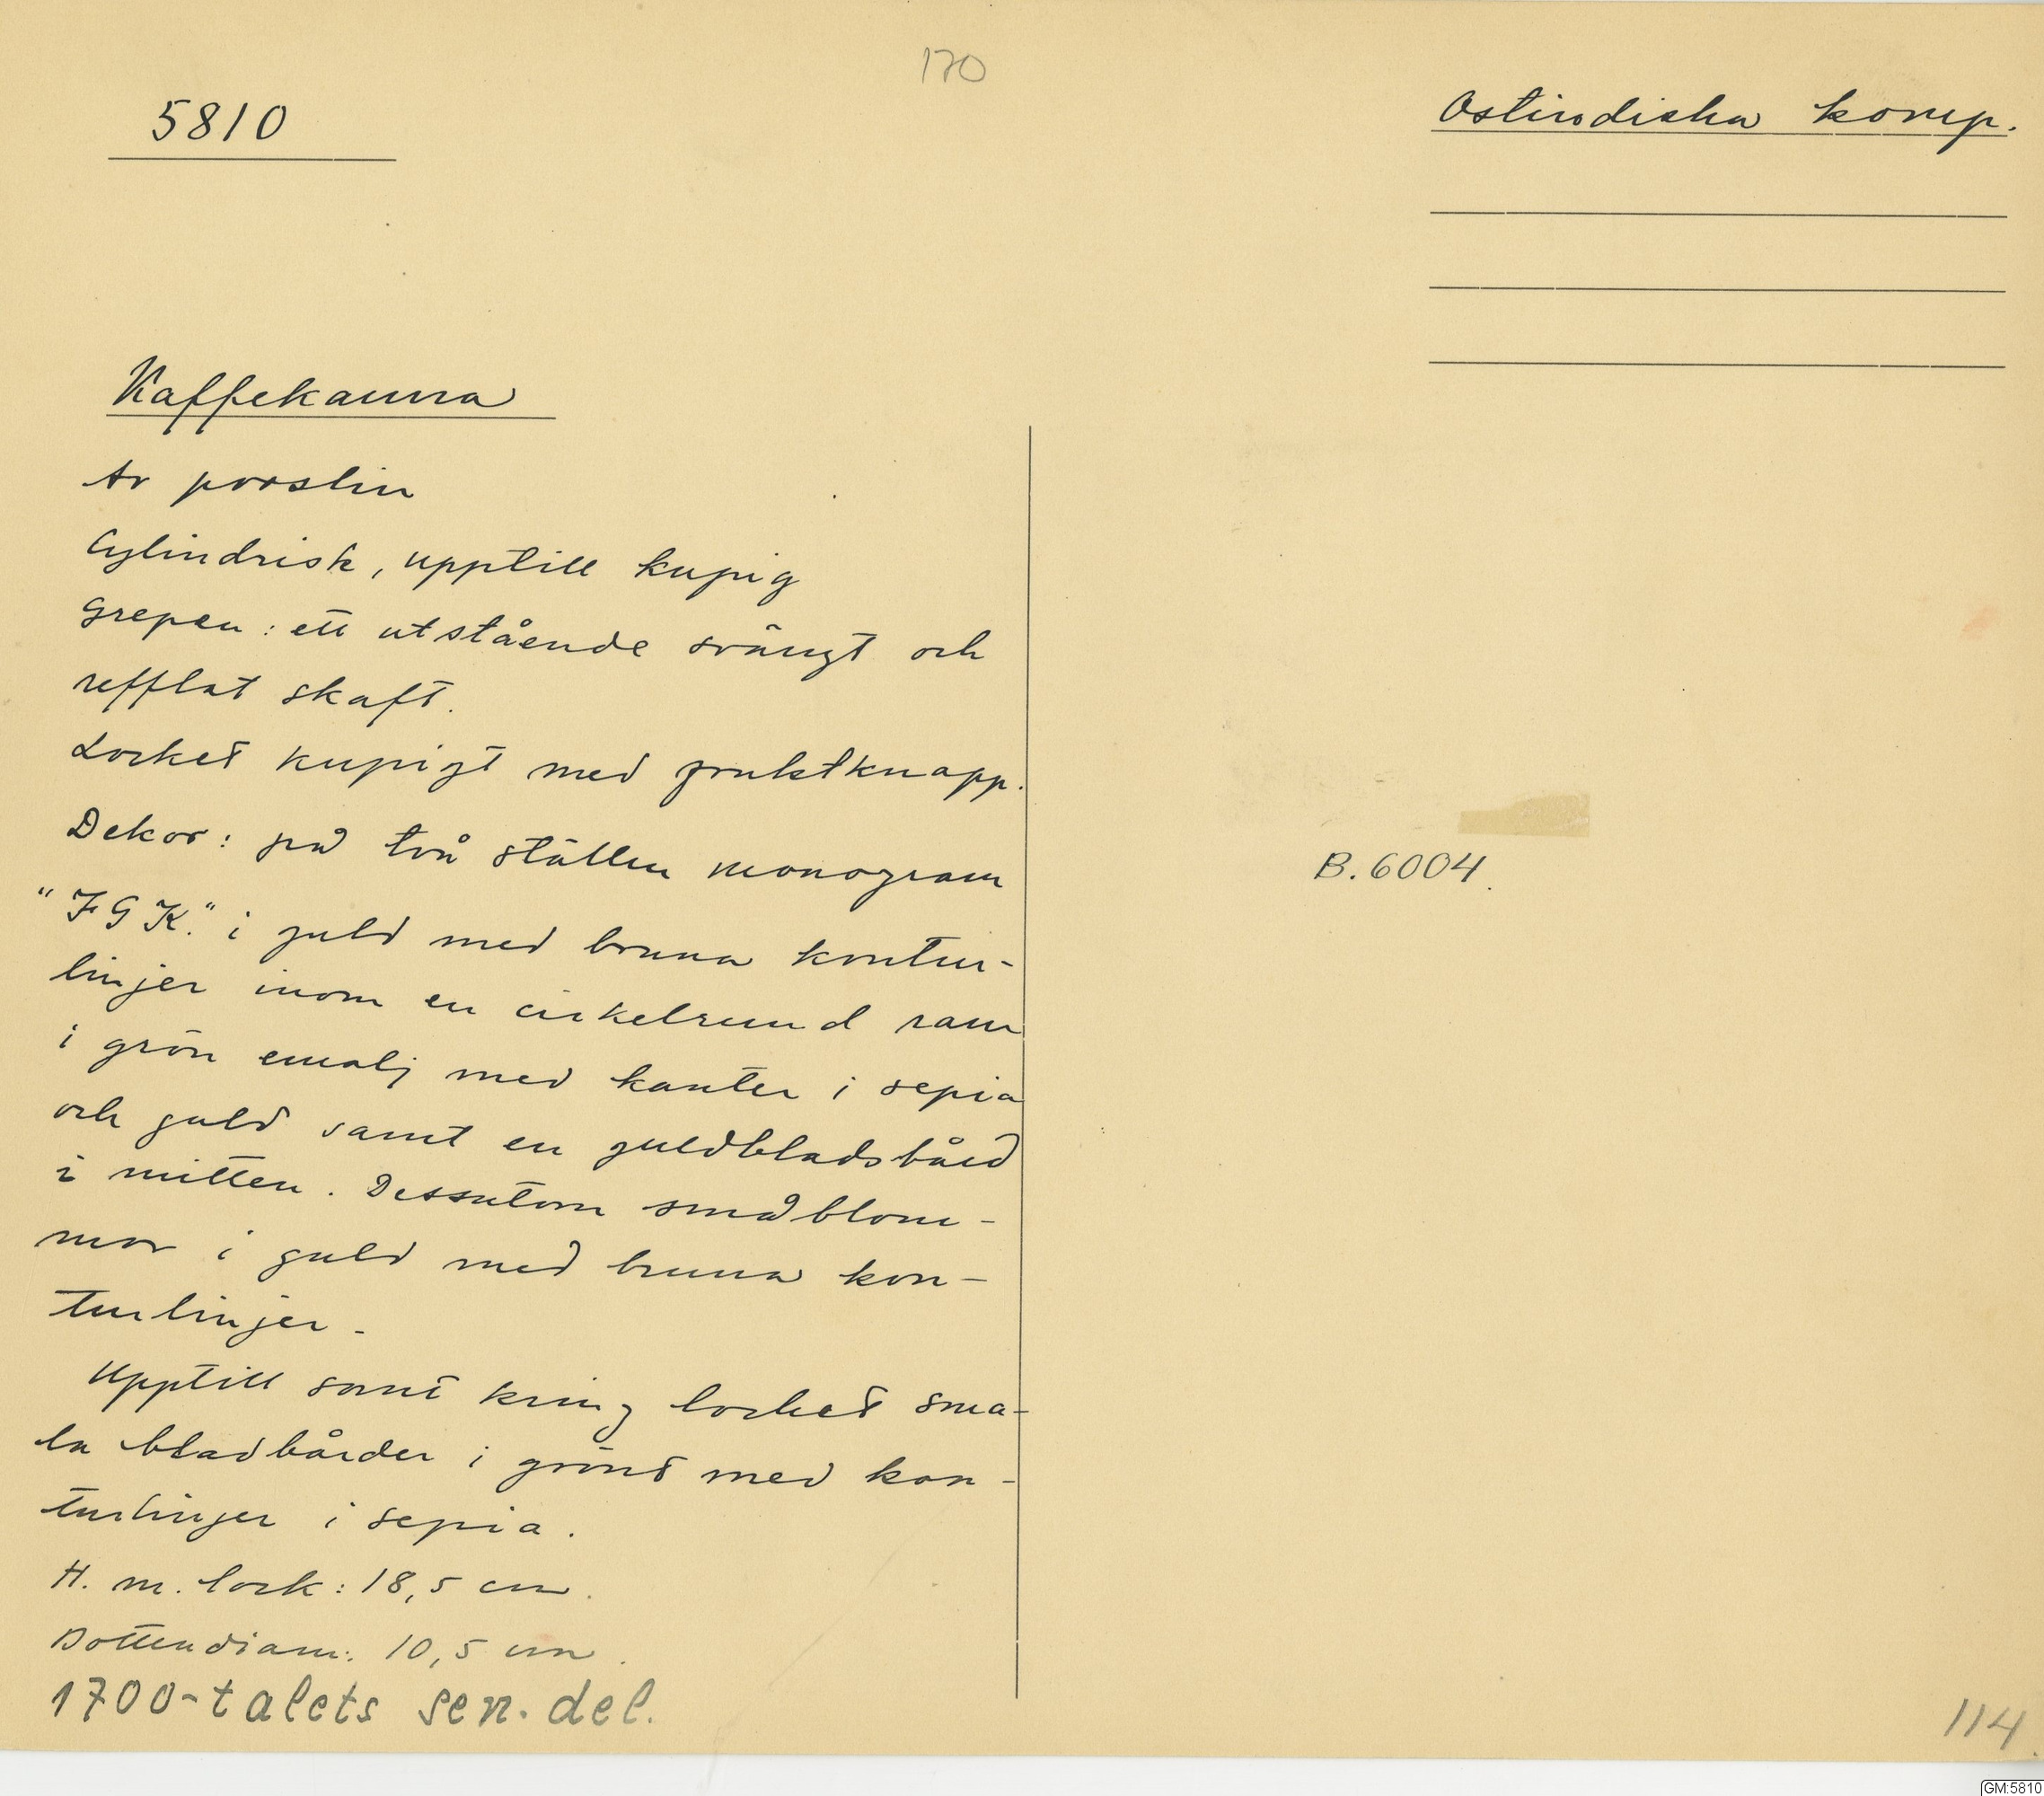 170
5810
Ostindiska komp.
Kaffekanna
Av porslin
Cylindrisk, upptill kupig
Grepen: ett utstående svängt och
refflat skaft.
Locket kupigt med fruktknapp.
Dekor: på två ställen monogram
"FGK." i guld med bruna kontur-
linjer inom en cirkelrund ram
i grön emalj med kanter i sepia
och guld samt en guldbladsbård
i mitten. Dessutom småblom-
mor i guld med bruna kon-
turlinjer.
Upptill samt kring locket sma-
la bladbårder i grönt med kon-
turlinjer i sepia.
H. m. lock: 18,5 cm.
Bottendiam: 10,5 cm.
1700-talets sen. del.
B. 6004.
114.
GM:5810